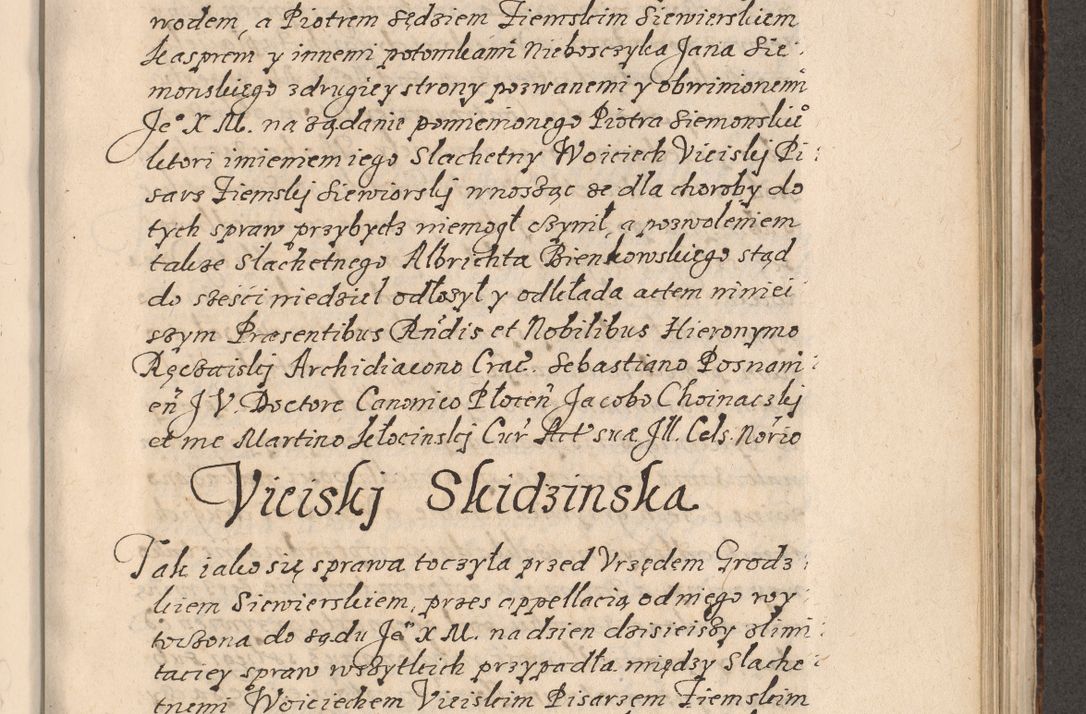 wodem, a Piotrem Sędziem Ziemskim Siewierskiem
Kasprem y innemi potomkami Nieboszczyka Jana Sie
monskiego z drugiey strony pozwanemi y obwinionemi
Je° X M. na ządanie pomienionego Piotra Siemonskie°
ktori imieniem iego Slachetny Woiciech Viciskj Pi
sarz Ziemskj Siewiorskj wnosząc ze dla choroby do
tych spraw przybydz niemogł czynił, a pozwoleniem
takze Slachetnego Albrichta Bienkowskiego stąd
do sześci niedziel odłozył y odkłada actem niniei
szym Præsentibus Rñdis et Nobilibus Hieronymo
Ręczaiskj Archidiacono Crac̃. Sebastiano Posnani
eñ J V. Doctore Canonico Płoceñ Jacobo Choinackj
et me Martino Kłocinskj Cur̃ Act suæ Jll. Cels. Nõrio
Viciskj Skidzinska
Tak iako się sprawa toczyła przed Vrzędem Grodz
kiem Siewierskiem, przes appellacią od niego wy
toczona do sądu Je° X M. na dzien dzisieiszy z limi
taciey spraw wszytkich przypadła między Slache
tnemi Woiciechem Viciskim Pisarzem Ziemskim